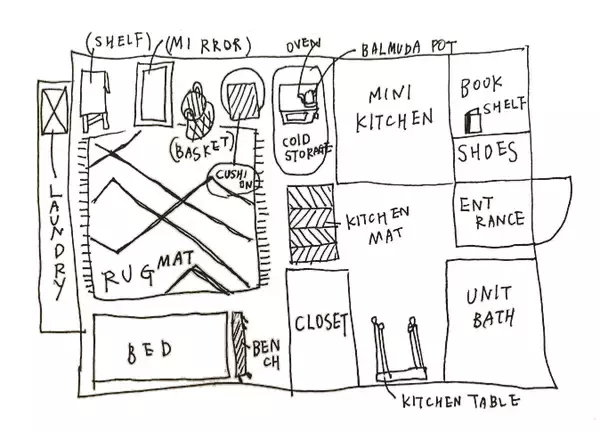 (SHELF)
(MIRROR)
OVEN
BALMUDA POT
MINI
KITCHEN
BOOK
SHELF
COLD
STORAGE
(BASKET)
SHOES
CUSHI
ON
LAUNDRY
KITCHEN
MAT
ENT
RANCE
RUG MAT
CLOSET
UNIT
BATH
BED
BEN
CH
KITCHEN TABLE